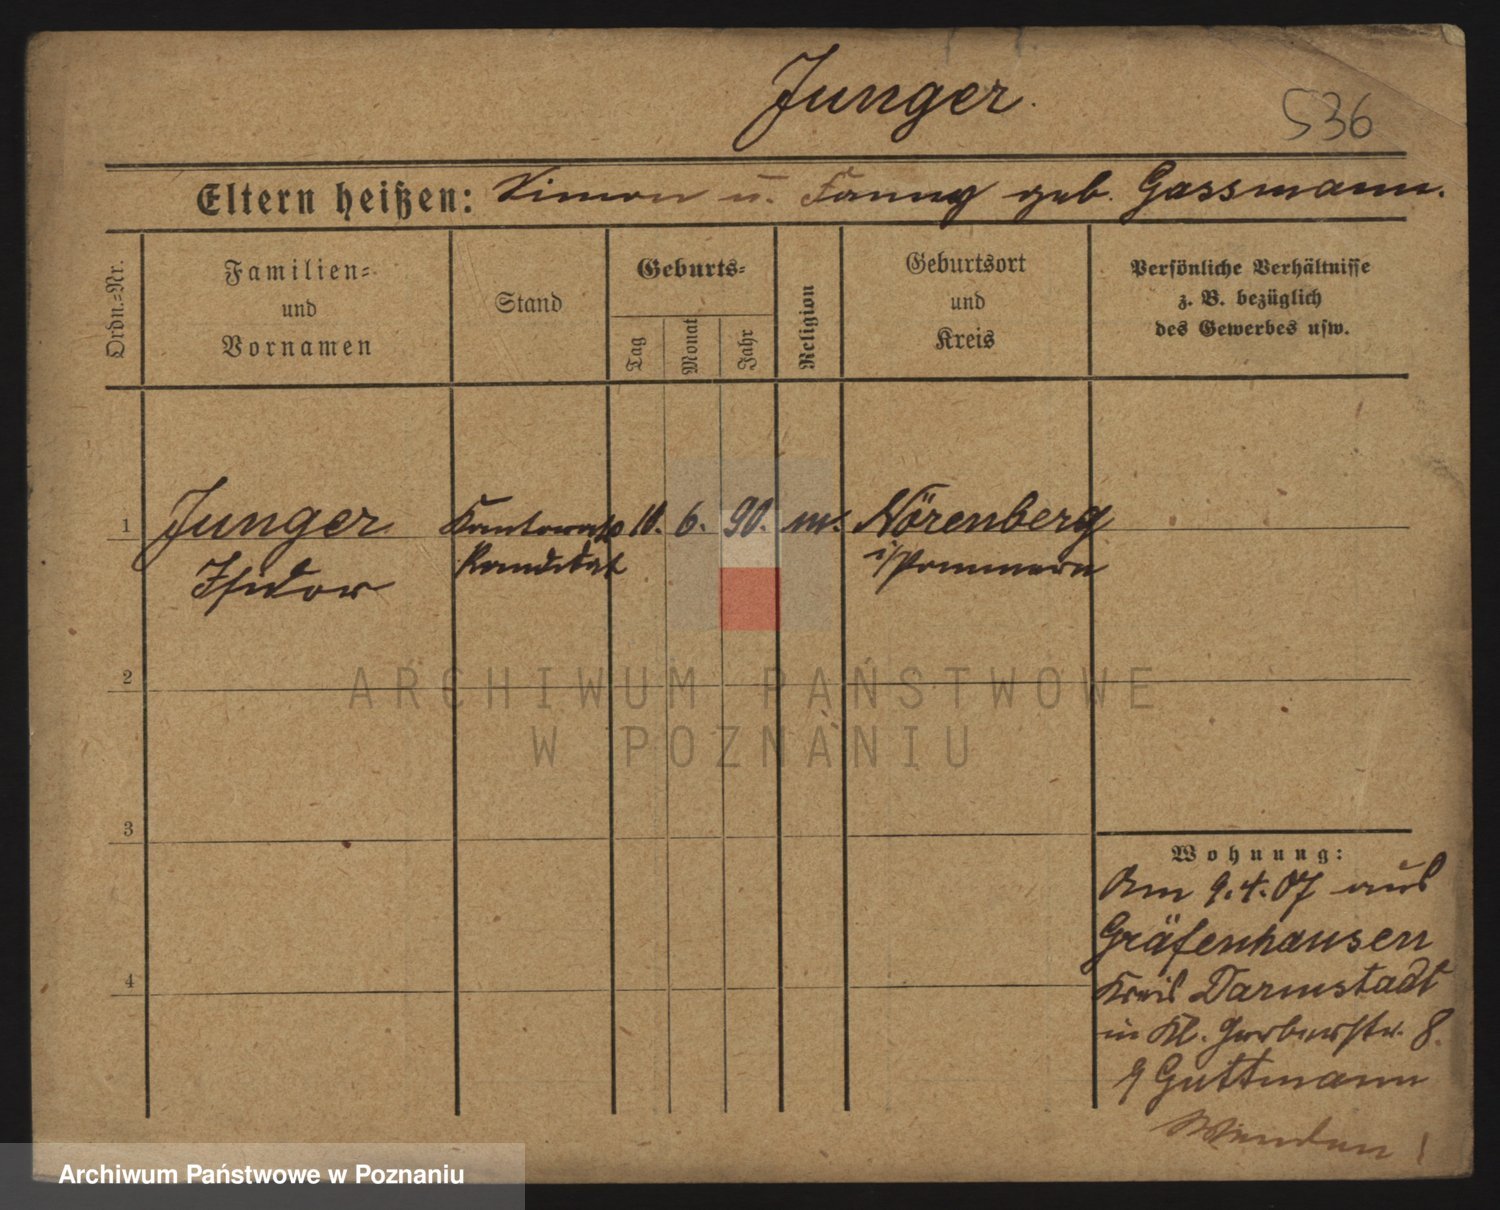 Junger.
536
Eltern heißen: Simon u. Fanny geb. Gassmann.
Ordn.=Nr.
Familien=
und
Vornamen
Stand
Geburts=
Tag
Monat
Jahr
Religion
Geburtsort
und
Kreis
Persönliche Verhältnisse
z. B. bezüglich
des Gewerbes usw.
1
Junger
Isidor
Kandidat
10. 6. 90. m.
Nörenberg
i/Pommern
2
ARCHIWUM PAŃSTWOWE
W POZNANIU
3
4
Wohnung:
Am 9.4.07 aus
Gräfenhausen
Kreis Darmstadt
in Kl. Gerberstr. 8.
Guttmann
Wenden!
Archiwum Państwowe w Poznaniu